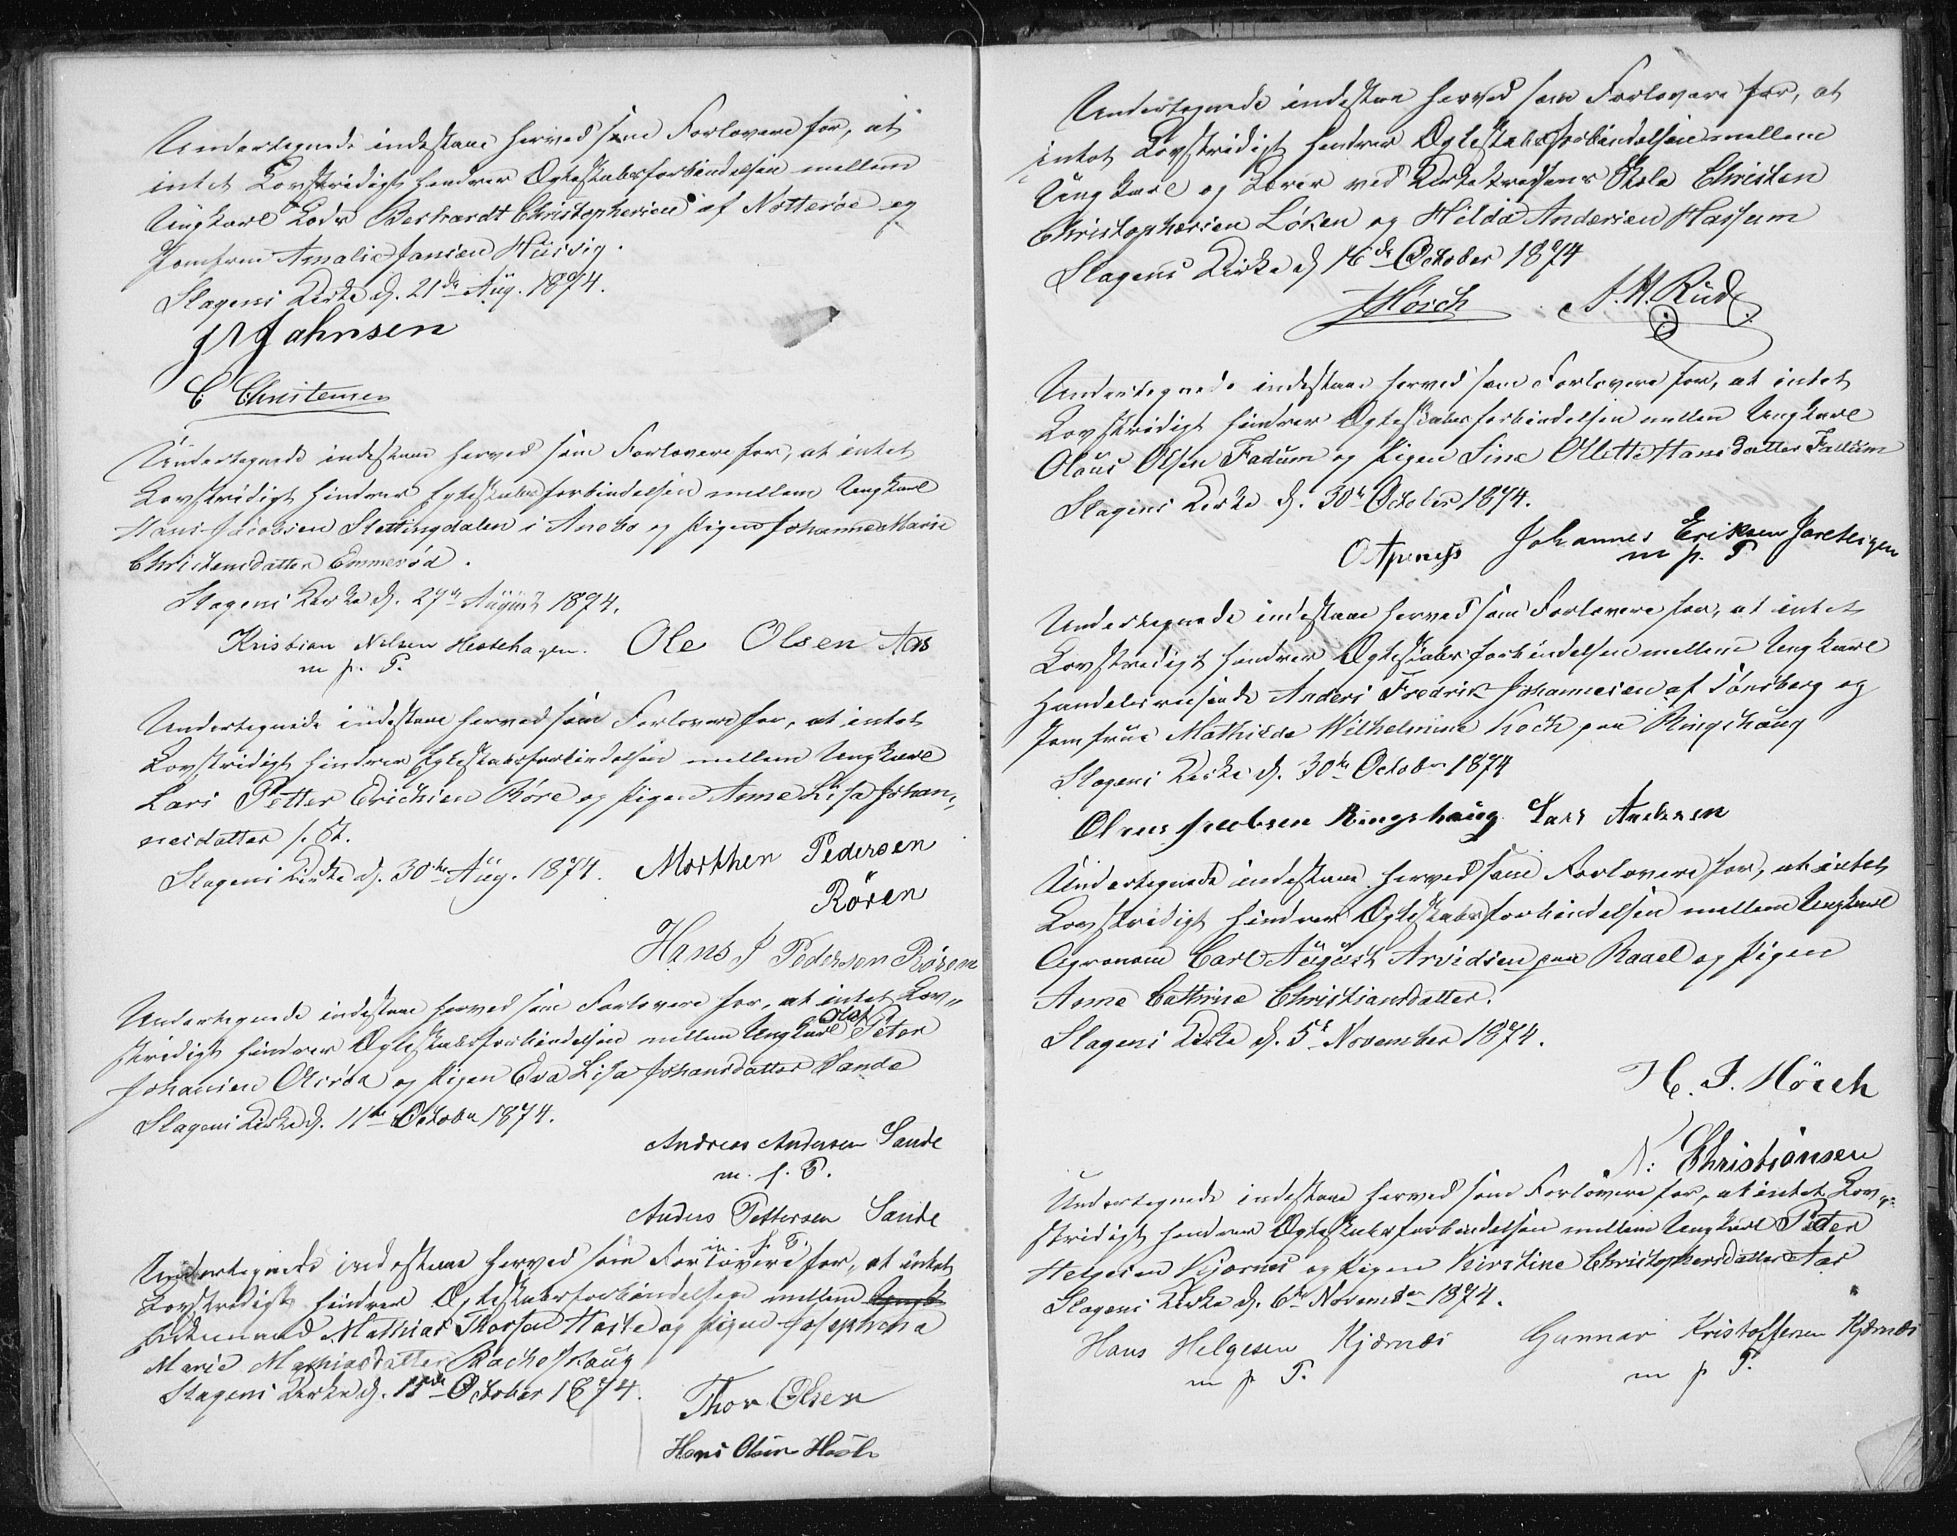 Undertegnede indestaae herved som Forlovere for, at
intet Lovstridigt hindrer Ægteskabsforbindelsen mellem
Ungkarl Lods Berhardt Christophersen af Nøtterøe og
Jomfrue Amalie Jansen Huisvig.
Slagens Kirke d. 21de Aug. 1874.
Jahnsen
C Christensen
Undertegnede indestaae herved som Forlovere for, at intet
Lovstridigt hindrer Egteskabsforbindelsen mellem Ungkarl
Hans Jacobsen Slettingdalen i Anebo og Pigen Johanne Marie
Christensdatter Emmerød.
Slagens Kirke d. 27de August 1874.
Kristian Nilsen Hestehagen. Ole Olsen Aas
m. p. P.
Undertegnede indestaae herved som Forlovere for, at intet
Lovstridigt hindrer Egteskabsforbindelsen mellem Ungkarl
Lars Petter Erichsen Røre og Pigen Anne Lisa Johan-
nesdatter s. St.
Slagens Kirke d. 30te Aug. 1874. Morthen Pedersen
Røren
Hans J Pedersen Røren
Undertegnede indestaae herved som Forlovere for, at intet Lov-
stridigt hindrer Ægteskabsforbindelsen mellem Ungkarl Olaf Peter
Johansen Olsrød og Pigen Eva Lisa Johansdatter Sande
Slagens Kirke d. 11te October 1874.
Andreas Andersen Sande
m. p. P.
Anders Pettersen Sande
m. p. P.
Undertegnede indestaae herved som Forlovere for, at intet
Lovstridigt hindrer Ægteskabsforbindelsen mellem Ungk
Enkemand Mathias Thorsen Hasle og Pigen Josephina
Marie Mathiasdatter Bacheskaug
Slagens Kirke d. 15de October 1874.
Thor Olsen
Hans Olsen Hasle
Undertegnede indestaae herved som Forlovere for, at
intet Lovstridigt hindrer Ægteskabsforbindelsen mellem
Ungkarl og Lærer ved Kirkekredsens Skole Christen
Christophersen Løken og Hilda Andersen Hassum
Slagens Kirke d. 16de October 1874
Hørch A. H. Rud
Undertegnede indestaae herved som Forlovere for, at intet
Lovstridigt hindrer Ægteskabsforbindelsen mellem Ungkarl
Olaus Olsen Fadum og Pigen Sine Ollette Hansdatter Fadum
Slagens Kirke d. 30te October 1874.
Johannes Eriksen Jareteigen
m p. P
Undertegnede indestaae herved som Forlovere for, at intet
Lovstridigt hindrer Ægteskabsforbindelsen mellem Ungkarl
Handelsreisende Anders Fredrik Johannesen af Tønsberg og
Jomfrue Mathilde Wilhelmine Koch paa Ringshaug
Slagens Kirke d. 30te October 1874
Olaus Jacobsen Ringshaug Lars Andersen
Undertegnede indestaae herved som Forlovere for, at intet
Lovstridigt hindrer Ægteskabsforbindelsen mellem Ungkarl
Agronom Carl August Arvidsen paa Raael og Pigen
Anne Cathrine Christiansdatter.
Slagens Kirke d. 5te November 1874.
H. J. Hørch
N: Christiansen
Undertegnede indestaae herved som Forlovere for, at intet Lov-
stridigt hindrer Ægteskabsforbindelsen mellem Ungkarl Peter
Helgesen Kjærnes og Pigen Kirstine Christophersdatter Aas
Slagens Kirke d. 6te November 1874.
Hans Helgesen Kjærnæs Gunnar Kristoffersen Kjærnæs
m p P. m p P.